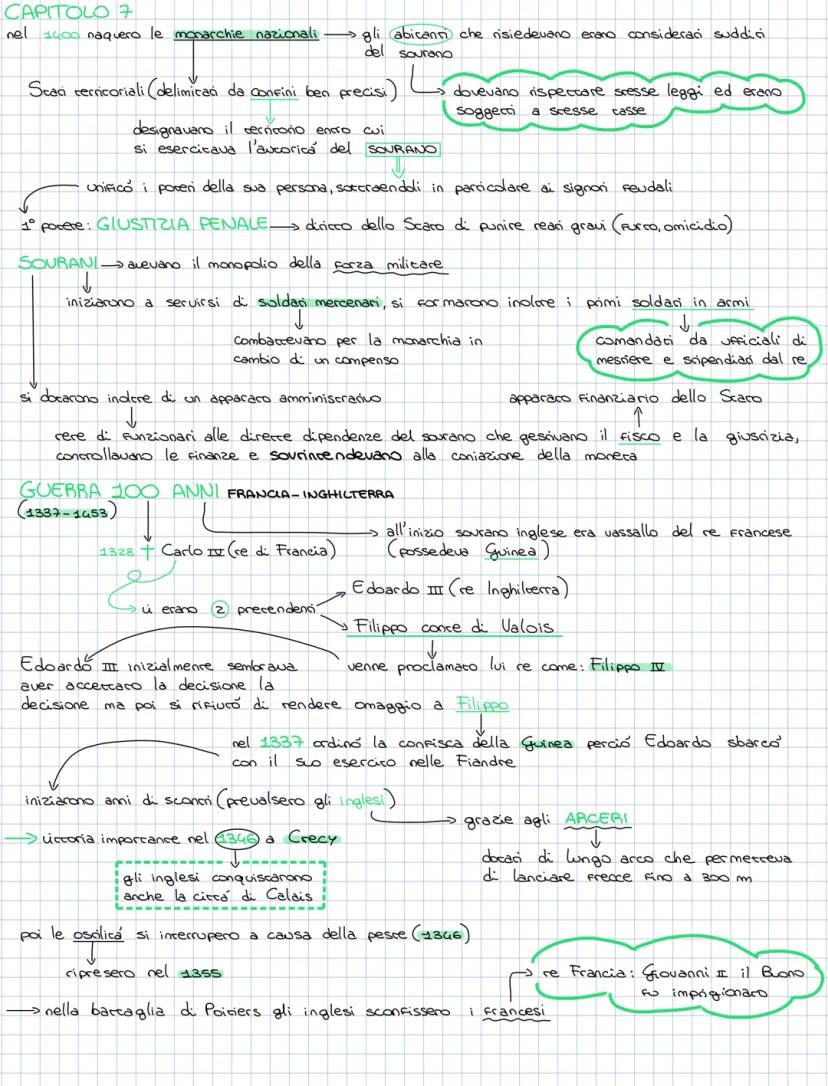 CAPITOLO 7
nel 1400 naquero le monarchie nazionali → gli abitanti che risiedevano erano considerati sudditi
del sovrano
Stati territoriali (delimitati da confini ben precisi)
dovevano rispettare stesse leggi ed erano
soggetti a stesse tasse
designavano il territorio entro cui
si esercitava l'autoritá del SOVRANO
unificó i poteri della sua persona, sottraendoli in particolare ai signori feudali
1° potere: GIUSTIZIA PENALE → diritto dello Stato di punire reati gravi (furto, omicidio)
SOVRANI → avevano il monopolio della forza militare
iniziarono a servirsi di soldati mercenari, si formarono inoltre i primi soldati in armi
combattevano per la monarchia in
cambio di un compenso
comandati da ufficiali di
mestiere e stipendiati dal re
si dotarono inoltre di un apparato amministrativo
apparato finanziario dello Stato
rete di funzionari alle dirette dipendenze del sovrano che gestivano il fisco e la giustizia,
controllavano le finanze e sovrintendevano alla coniazione della moneta
GUERRA 100 ANNI FRANCIA-INGHILTERRA
(1337-1453)
all'inizio sovrano inglese era vassallo del re francese
(possedeva Guinea)
1328 † Carlo IV (re di Francia)
vi erano 2 pretendenti
Edoardo III (re Inghilterra)
Filippo conte di Valois
Edoardo III inizialmente sembrava
aver accettato la decisione la
decisione ma poi si rifiutó di rendere omaggio a Filippo
venne proclamato lui re come: Filippo IV
nel 1337 ordinó la confisca della Guinea perció Edoardo sbarcó
con il suo esercito nelle Fiandre
iniziarono anni di scontri (prevalsero gli inglesi)
grazie agli ARCERI
→ vittoria importante nel 1346 a Crecy
dotati di lungo arco che permetteva
di lanciare frecce fino a 300 m
gli inglesi conquistarono
anche la cittá di Calais
poi le ostilitá si interrupero a causa della peste (1346)
ripresero nel 1355
re Francia: Giovanni II il Buono
fu imprigionato
→ nella battaglia di Poitiers gli inglesi sconfissero i francesi